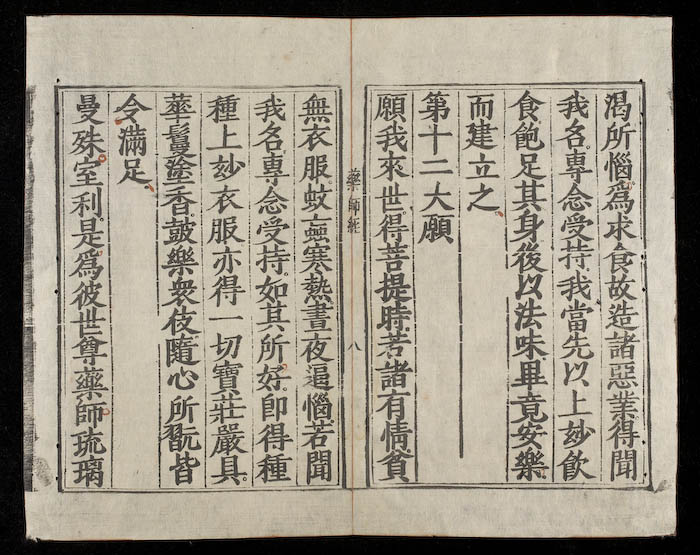 渴所惱爲求食故造諸惡業得聞
我名專念受持我當先以上妙飲
食飽足其身後以法味畢竟安樂
而建立之
第十二大願
願我來世得菩提時若諸有情貧
藥師經
八
無衣服蚊蝱寒熱晝夜逼惱若聞
我名專念受持如其所好即得種
種上玅衣服亦得一切寶莊嚴具
華鬘塗香鼓樂衆伎隨心所翫皆
令滿足
曼殊室利是爲彼世尊藥師琉璃